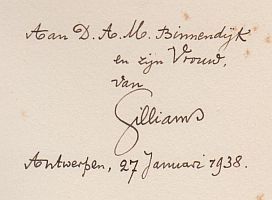 Aan D. A. M. Binnendijk
en zijn Vrouw,
van
Gilliams
Antwerpen, 27 Januari 1938.